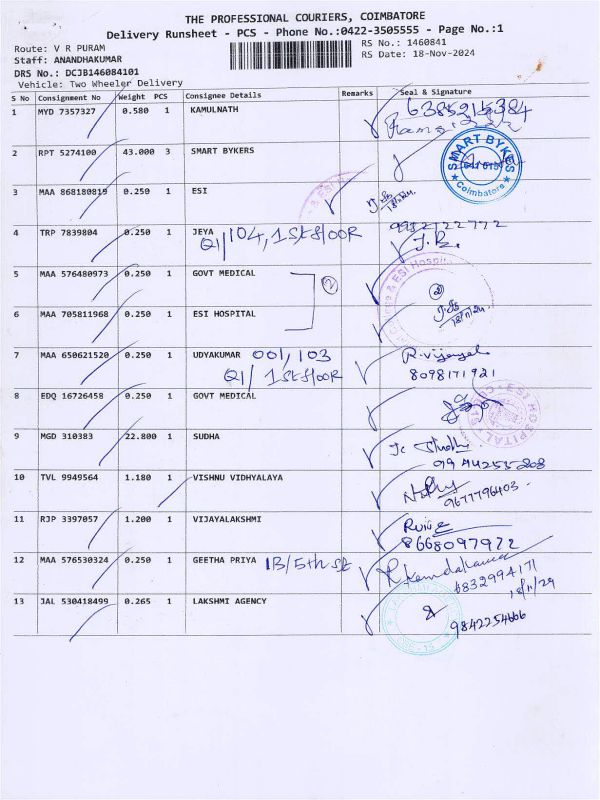 THE PROFESSIONAL COURIERS, COIMBATORE
Delivery Runsheet - PCS - Phone No.:0422-3505555 - Page No.:1
Route: V R PURAM
RS No.: 1460841
Staff: ANANDHAKUMAR
RS Date: 18-Nov-2024
DRS No.: DCJB146084101
Vehicle: Two Wheeler Delivery
S No Consignment No Weight PCS Consignee Details Remarks Seal & Signature
1 MYD 7357327 0.580 1 KAMULNATH
2 RPT 5274100 43.000 3 SMART BYKERS SMART BYKES Coimbatore
3 MAA 868180819 0.250 1 ESI 18/11/24
4 TRP 7839804 0.250 1 JEYA
Q1/104, 1st floor
5 MAA 576480973 0.250 1 GOVT MEDICAL & ESI Hospital
2
6 MAA 705811968 0.250 1 ESI HOSPITAL 2 18/11/24
7 MAA 650621520 0.250 1 UDYAKUMAR 001, 103
Q1/ 1st floor 8098171921
8 EDQ 16726458 0.250 1 GOVT MEDICAL ESI HOSPITAL
9 MGD 310383 22.800 1 SUDHA
10 TVL 9949564 1.180 1 VISHNU VIDHYALAYA 9677796403
11 RJP 3397057 1.200 1 VIJAYALAKSHMI 8668097972
12 MAA 576530324 0.250 1 GEETHA PRIYA 1B/5th st
6832994171
18/11/24
13 JAL 530418499 0.265 1 LAKSHMI AGENCY 9842254666